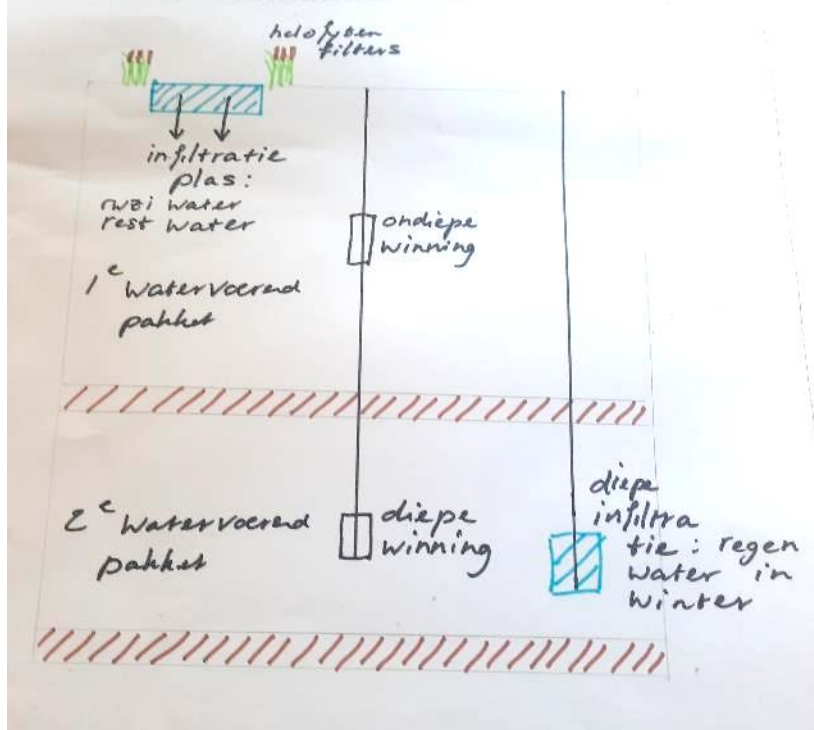 helofyten
filters
infiltratie
plas:
rwzi water
rest water
ondiepe
winning
1e watervoerend
pakket
2e watervoerend
pakket
diepe
winning
diepe
infiltra
tie: regen
water in
winter